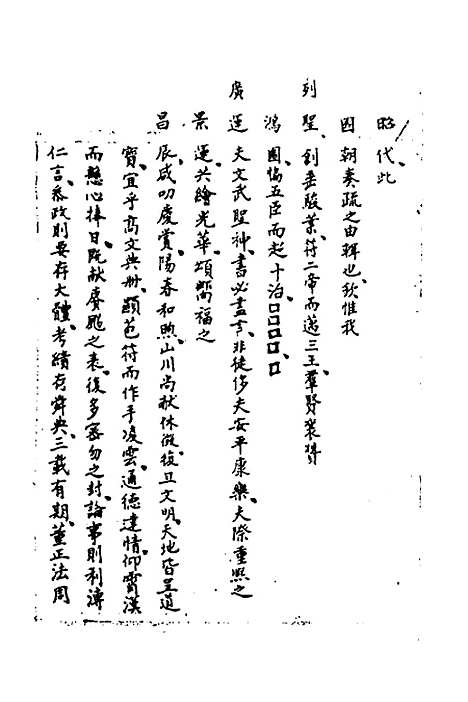 昭代此
國朝奏疏之由輯也欽惟我
列聖創垂駿業符二帝而邁三王羣賢襄贊
鴻圖協五臣而超十治□□□□□
廣運夫文武聖神書必盡言非徒侈夫安平康樂夫際重熙之
景運共繪光華頌鬯福之
昌辰咸叨慶賞陽春和煦山川尚献休徵復旦文明天地皆呈道
寶宜乎高文典册顯苞符而作手凌雲通德達情仰霄漢
而懸心捧日既献賡颺之表復多密勿之封論事則利溥
仁言恭政則要存大體考績存舜典三載有期董正法周